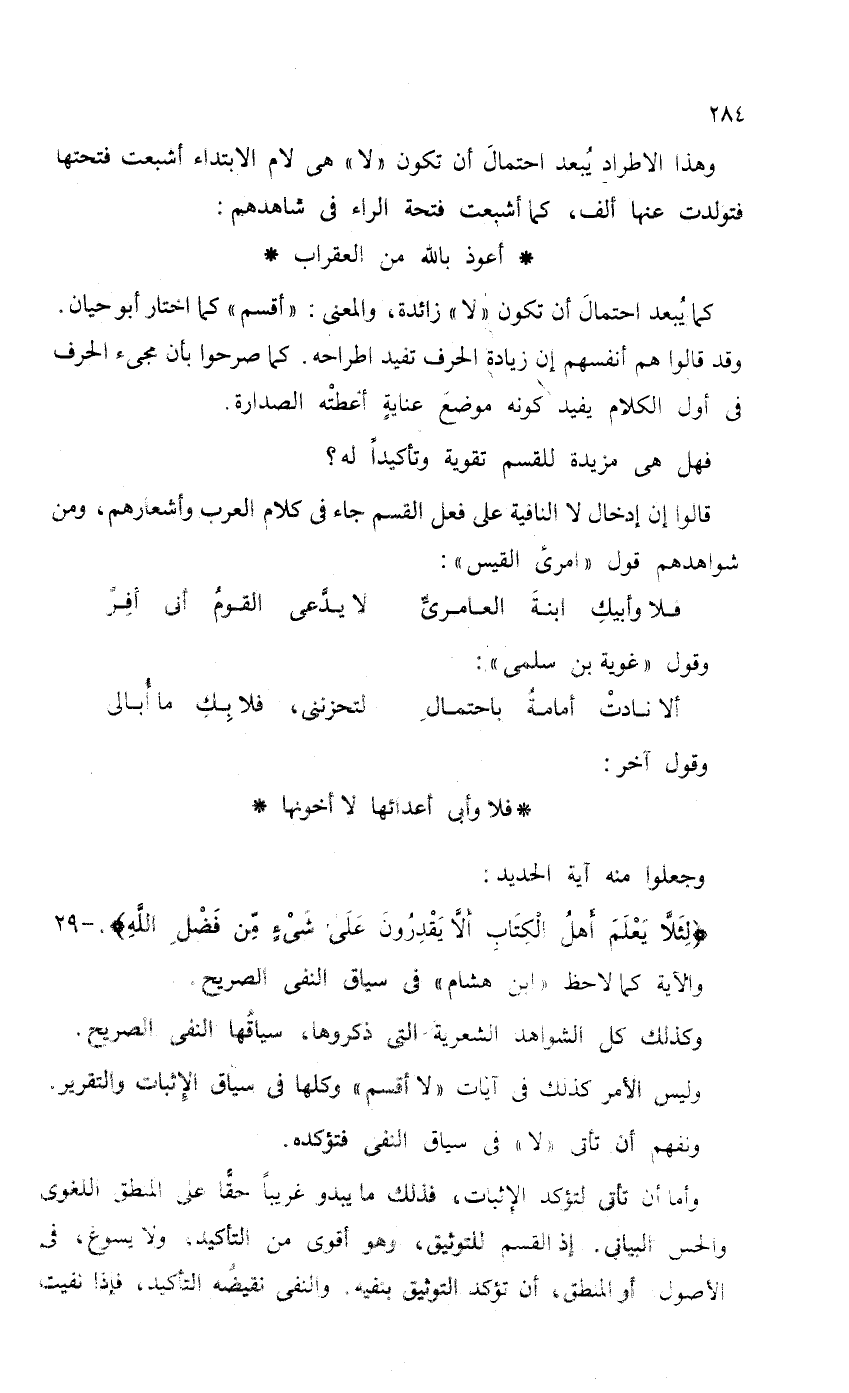 ٢٨٤
وهذا الاطراد يُبعد احتمالَ أن تكون «لا» هى لام الابتداء أشبعت فتحتها
فتولدت عنها ألف، كما أشبعت فتحة الراء فى شاهدهم :
* أعوذ بالله من العقراب *
كما يُبعد احتمالَ أن تكون «لا» زائدة، والمعنى : «أقسم» كما اختار أبو حيان.
وقد قالوا هم أنفسهم إن زيادة الحرف تفيد اطراحه. كما صرحوا بأن مجىء الحرف
فى أول الكلام يفيد كونه موضعَ عنايةٍ أعطتْه الصدارة.
فهل هى مزيدة للقسم تقوية وتأكيداً له؟
قالوا إن إدخال لا النافية على فعل القسم جاء فى كلام العرب وأشعارهم، ومن
شواهدهم قول «امرىْ القيس» :
فـلا وأبيكِ ابنةَ العـامـرىِّ لا يـدَّعى القـومُ أنى أفِـرّ
وقول «غوية بن سلمى» :
ألا نـادتْ أمامـةُ باحتمـالِ لتحزننى، فلا بِـكِ ما أُبـالى
وقول آخر :
* فلا وأبى أعدائها لا أخونها *
وجعلوا منه آية الحديد :
﴿لِئَلَّا يَعْلَمَ أَهلُ الْكِتَابِ أَلَّا يَقْدِرُونَ عَلَى شَىْءٍ مِّن فَضْلِ اللَّهِ﴾. -٢٩
والآية كما لاحظ «ابن هشام» فى سياق النفى الصريح.
وكذلك كل الشواهد الشعرية التى ذكروها، سياقُها النفى الصريح.
وليس الأمر كذلك فى آيات «لا أقسم» وكلها فى سياق الإثبات والتقرير.
ونفهم أن تأتى «لا» فى سياق النفى فتؤكده.
وأما أن تأتى لتؤكد الإثبات، فذلك ما يبدو غريباً حقًّا على المنطق اللغوى
والحس البيانى. إذ القسم للتوثيق، وهو أقوى من التأكيد. ولا يسوغ، فى
الأصول أو المنطق، أن تؤكد التوثيق بنفيه. والنفى نقيضُه التأكيد، فإذا نفيت